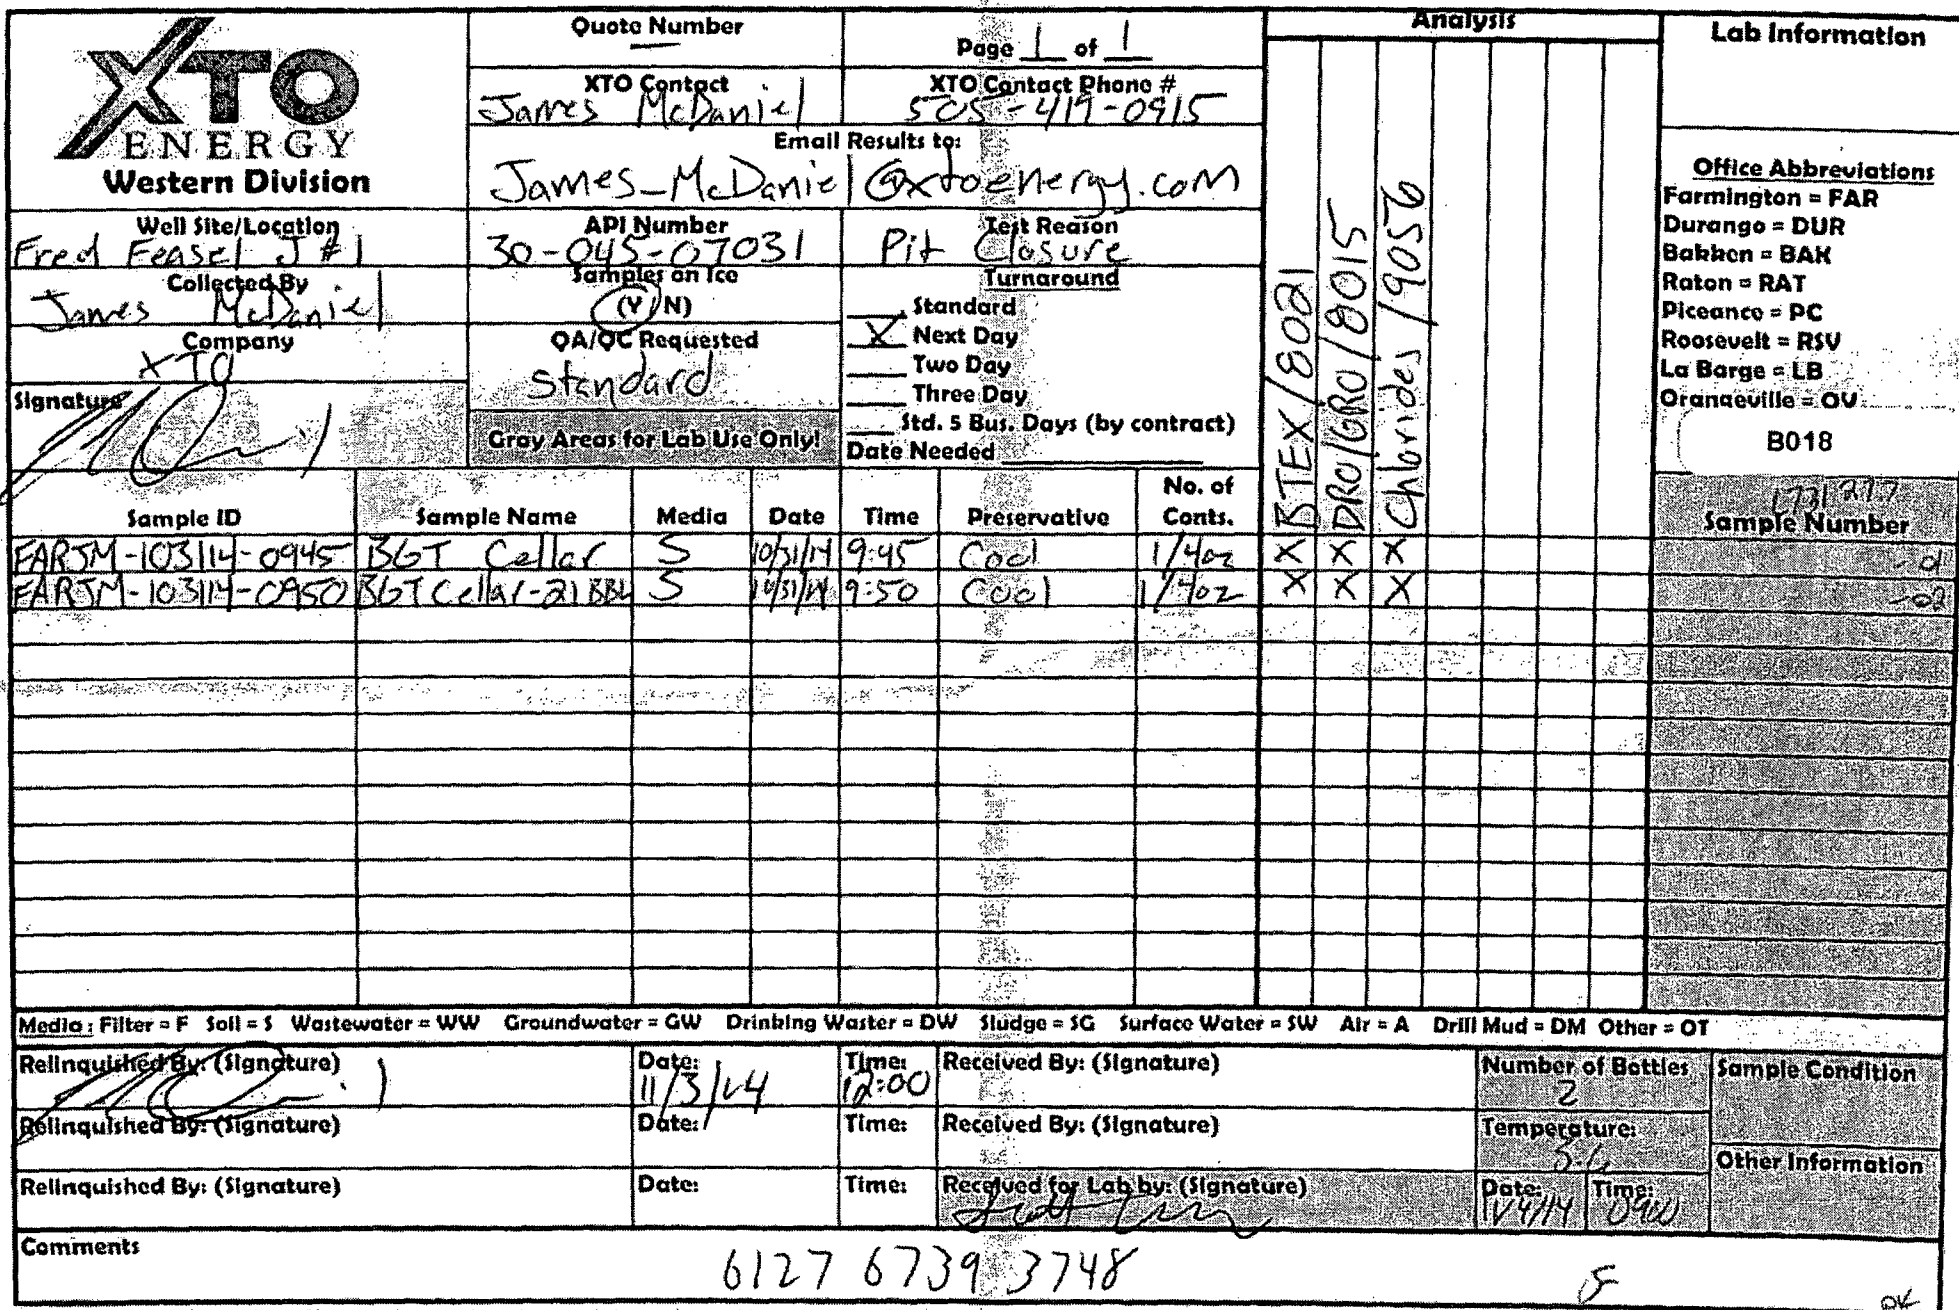 XTO
ENERGY
Western Division
Quote Number
Page 1 of 1
XTO Contact
James McDaniel
XTO Contact Phone #
505-419-0915
Email Results to:
James_McDaniel@xtoenergy.com
Well Site/Location
Fred Feasel J #1
API Number
30-045-07031
Test Reason
Pit Closure
Collected By
James McDaniel
Samples on Ice
(Y/N)
Turnaround
Standard
X Next Day
Two Day
Three Day
Std. 5 Bus. Days (by contract)
Date Needed
Company
XTO
QA/QC Requested
Standard
Signature
Gray Areas for Lab Use Only!
Analysis
BTEX/8021
DRO/GRO/8015
Chlorides/9056
Lab Information
Office Abbreviations
Farmington = FAR
Durango = DUR
Bakken = BAK
Raton = RAT
Piceance = PC
Roosevelt = RSV
La Barge = LB
Orangeville = OV
B018
Sample ID Sample Name Media Date Time Preservative No. of Conts. Sample Number
FARJM-103114-0945 BGT Cellar S 10/31/14 9:45 Cool 1/4oz X X X -01
FARJM-103114-0950 BGT Cellar-21 BBL S 10/31/14 9:50 Cool 1/4oz X X X -02
Media: Filter = F Soil = S Wastewater = WW Groundwater = GW Drinking Waster = DW Sludge = SG Surface Water = SW Air = A Drill Mud = DM Other = OT
Relinquished By: (Signature) Date: 11/3/14 Time: 12:00 Received By: (Signature) Number of Bottles 2 Sample Condition
Relinquished By: (Signature) Date: Time: Received By: (Signature) Temperature:
Other Information
Relinquished By: (Signature) Date: Time: Received for Lab by: (Signature) Date: 11/4/14 Time: 0900
Comments
6127 6739 3748